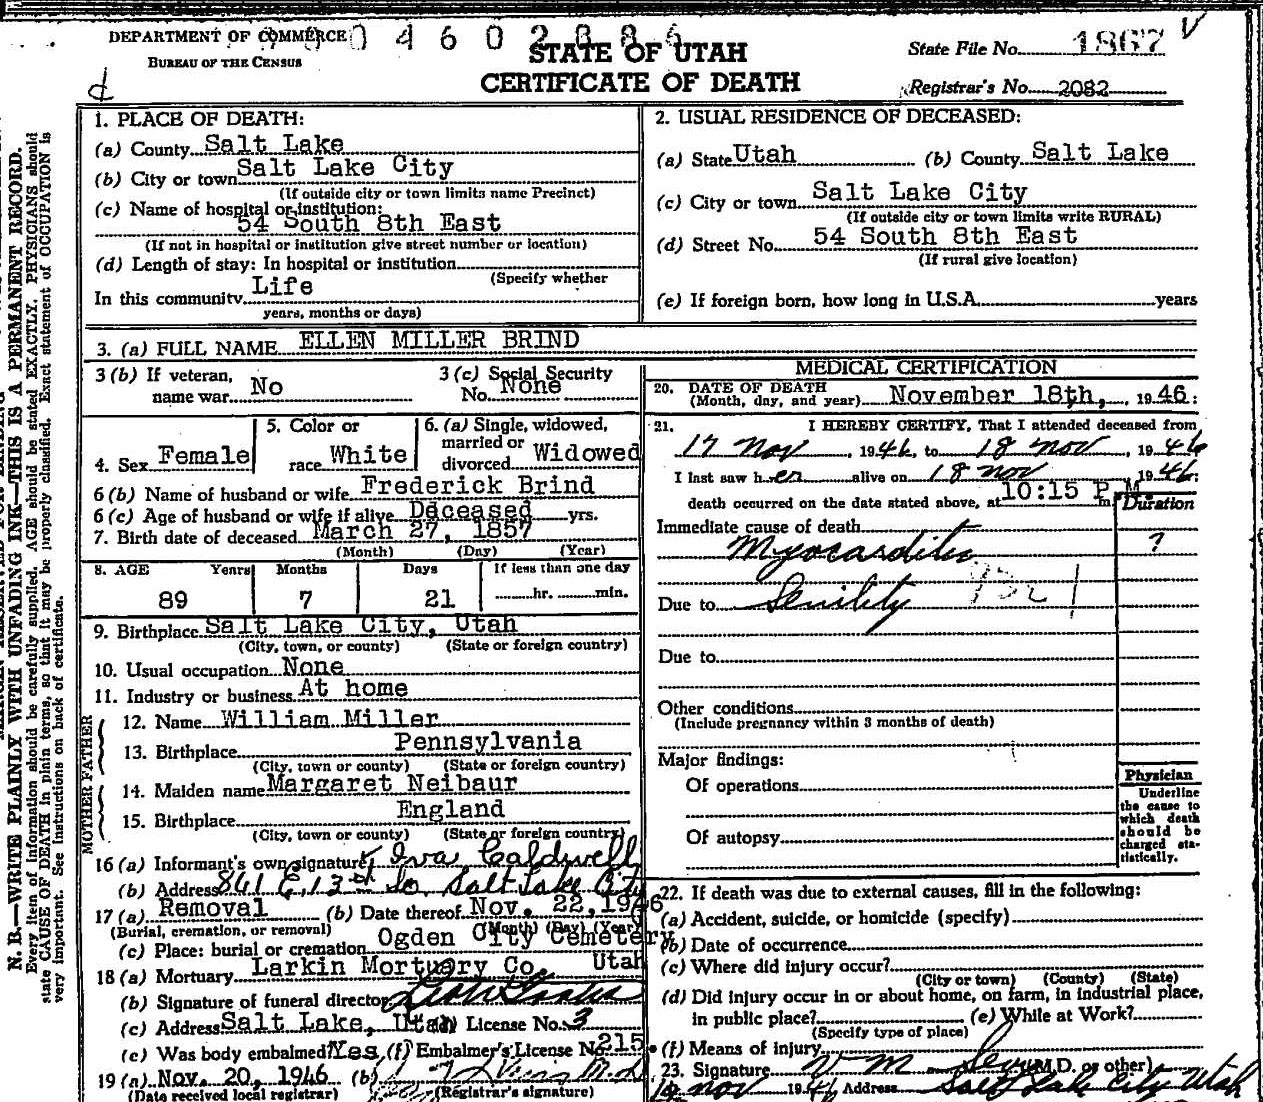 DEPARTMENT OF COMMERCE
BUREAU OF THE CENSUS
STATE OF UTAH
CERTIFICATE OF DEATH
State File No. 1867
Registrar's No. 2082
1. PLACE OF DEATH:
(a) County Salt Lake
(b) City or town Salt Lake City
(If outside city or town limits name Precinct)
(c) Name of hospital or institution:
54 South 8th East
(If not in hospital or institution give street number or location)
(d) Length of stay: In hospital or institution
(Specify whether
In this community Life
years, months or days)
2. USUAL RESIDENCE OF DECEASED:
(a) State Utah (b) County Salt Lake
(c) City or town Salt Lake City
(If outside city or town limits write RURAL)
(d) Street No. 54 South 8th East
(If rural give location)
(e) If foreign born, how long in U.S.A. years
3. (a) FULL NAME ELLEN MILLER BRIND
3 (b) If veteran, name war No
3 (c) Social Security No. None
4. Sex Female
5. Color or race White
6. (a) Single, widowed, married or divorced Widowed
6 (b) Name of husband or wife Frederick Brind
6 (c) Age of husband or wife if alive Deceased yrs.
7. Birth date of deceased March 27, 1857
(Month) (Day) (Year)
8. AGE Years Months Days If less than one day
89 7 21 hr. min.
9. Birthplace Salt Lake City, Utah
(City, town, or county) (State or foreign country)
10. Usual occupation None
11. Industry or business At home
FATHER
12. Name William Miller
13. Birthplace Pennsylvania
(City, town or county) (State or foreign country)
MOTHER
14. Maiden name Margaret Neibaur
15. Birthplace England
(City, town or county) (State or foreign country)
16 (a) Informant's own signature Iva Caldwell
(b) Address 861 E. 13th So Salt Lake City
17 (a) Removal (b) Date thereof Nov. 22, 1946
(Burial, cremation, or removal) (Month) (Day) (Year)
(c) Place: burial or cremation Ogden City Cemetery
Utah
18 (a) Mortuary Larkin Mortuary Co.
(b) Signature of funeral director
(c) Address Salt Lake, Utah (d) License No. 3
(e) Was body embalmed? Yes (f) Embalmer's License No. 215
19 (a) Nov. 20, 1946 (b)
(Date received local registrar) (Registrar's signature)
MEDICAL CERTIFICATION
20. DATE OF DEATH
(Month, day, and year) November 18th, 1946:
21. I HEREBY CERTIFY, That I attended deceased from
17 Nov, 1946, to 18 Nov, 1946
I last saw her alive on 18 Nov 1946:
death occurred on the date stated above, at 10:15 P. M
Duration
Immediate cause of death
Myocarditis ?
Due to Senility
Due to
Other conditions
(Include pregnancy within 3 months of death)
Major findings:
Of operations
Of autopsy
Physician
Underline
the cause to
which death
should be
charged sta-
tistically.
22. If death was due to external causes, fill in the following:
(a) Accident, suicide, or homicide (specify)
(b) Date of occurrence
(c) Where did injury occur?
(City or town) (County) (State)
(d) Did injury occur in or about home, on farm, in industrial place,
in public place? (e) While at Work?
(Specify type of place)
(f) Means of injury
23. Signature (M.D. or other)
19 Nov 1946 Address Salt Lake City Utah
N. B.—WRITE PLAINLY WITH UNFADING INK—THIS IS A PERMANENT RECORD.
Every item of information should be carefully supplied. AGE should be stated EXACTLY. PHYSICIANS should
state CAUSE OF DEATH in plain terms, so that it may be properly classified. Exact statement of OCCUPATION is
very important. See instructions on back of certificate.